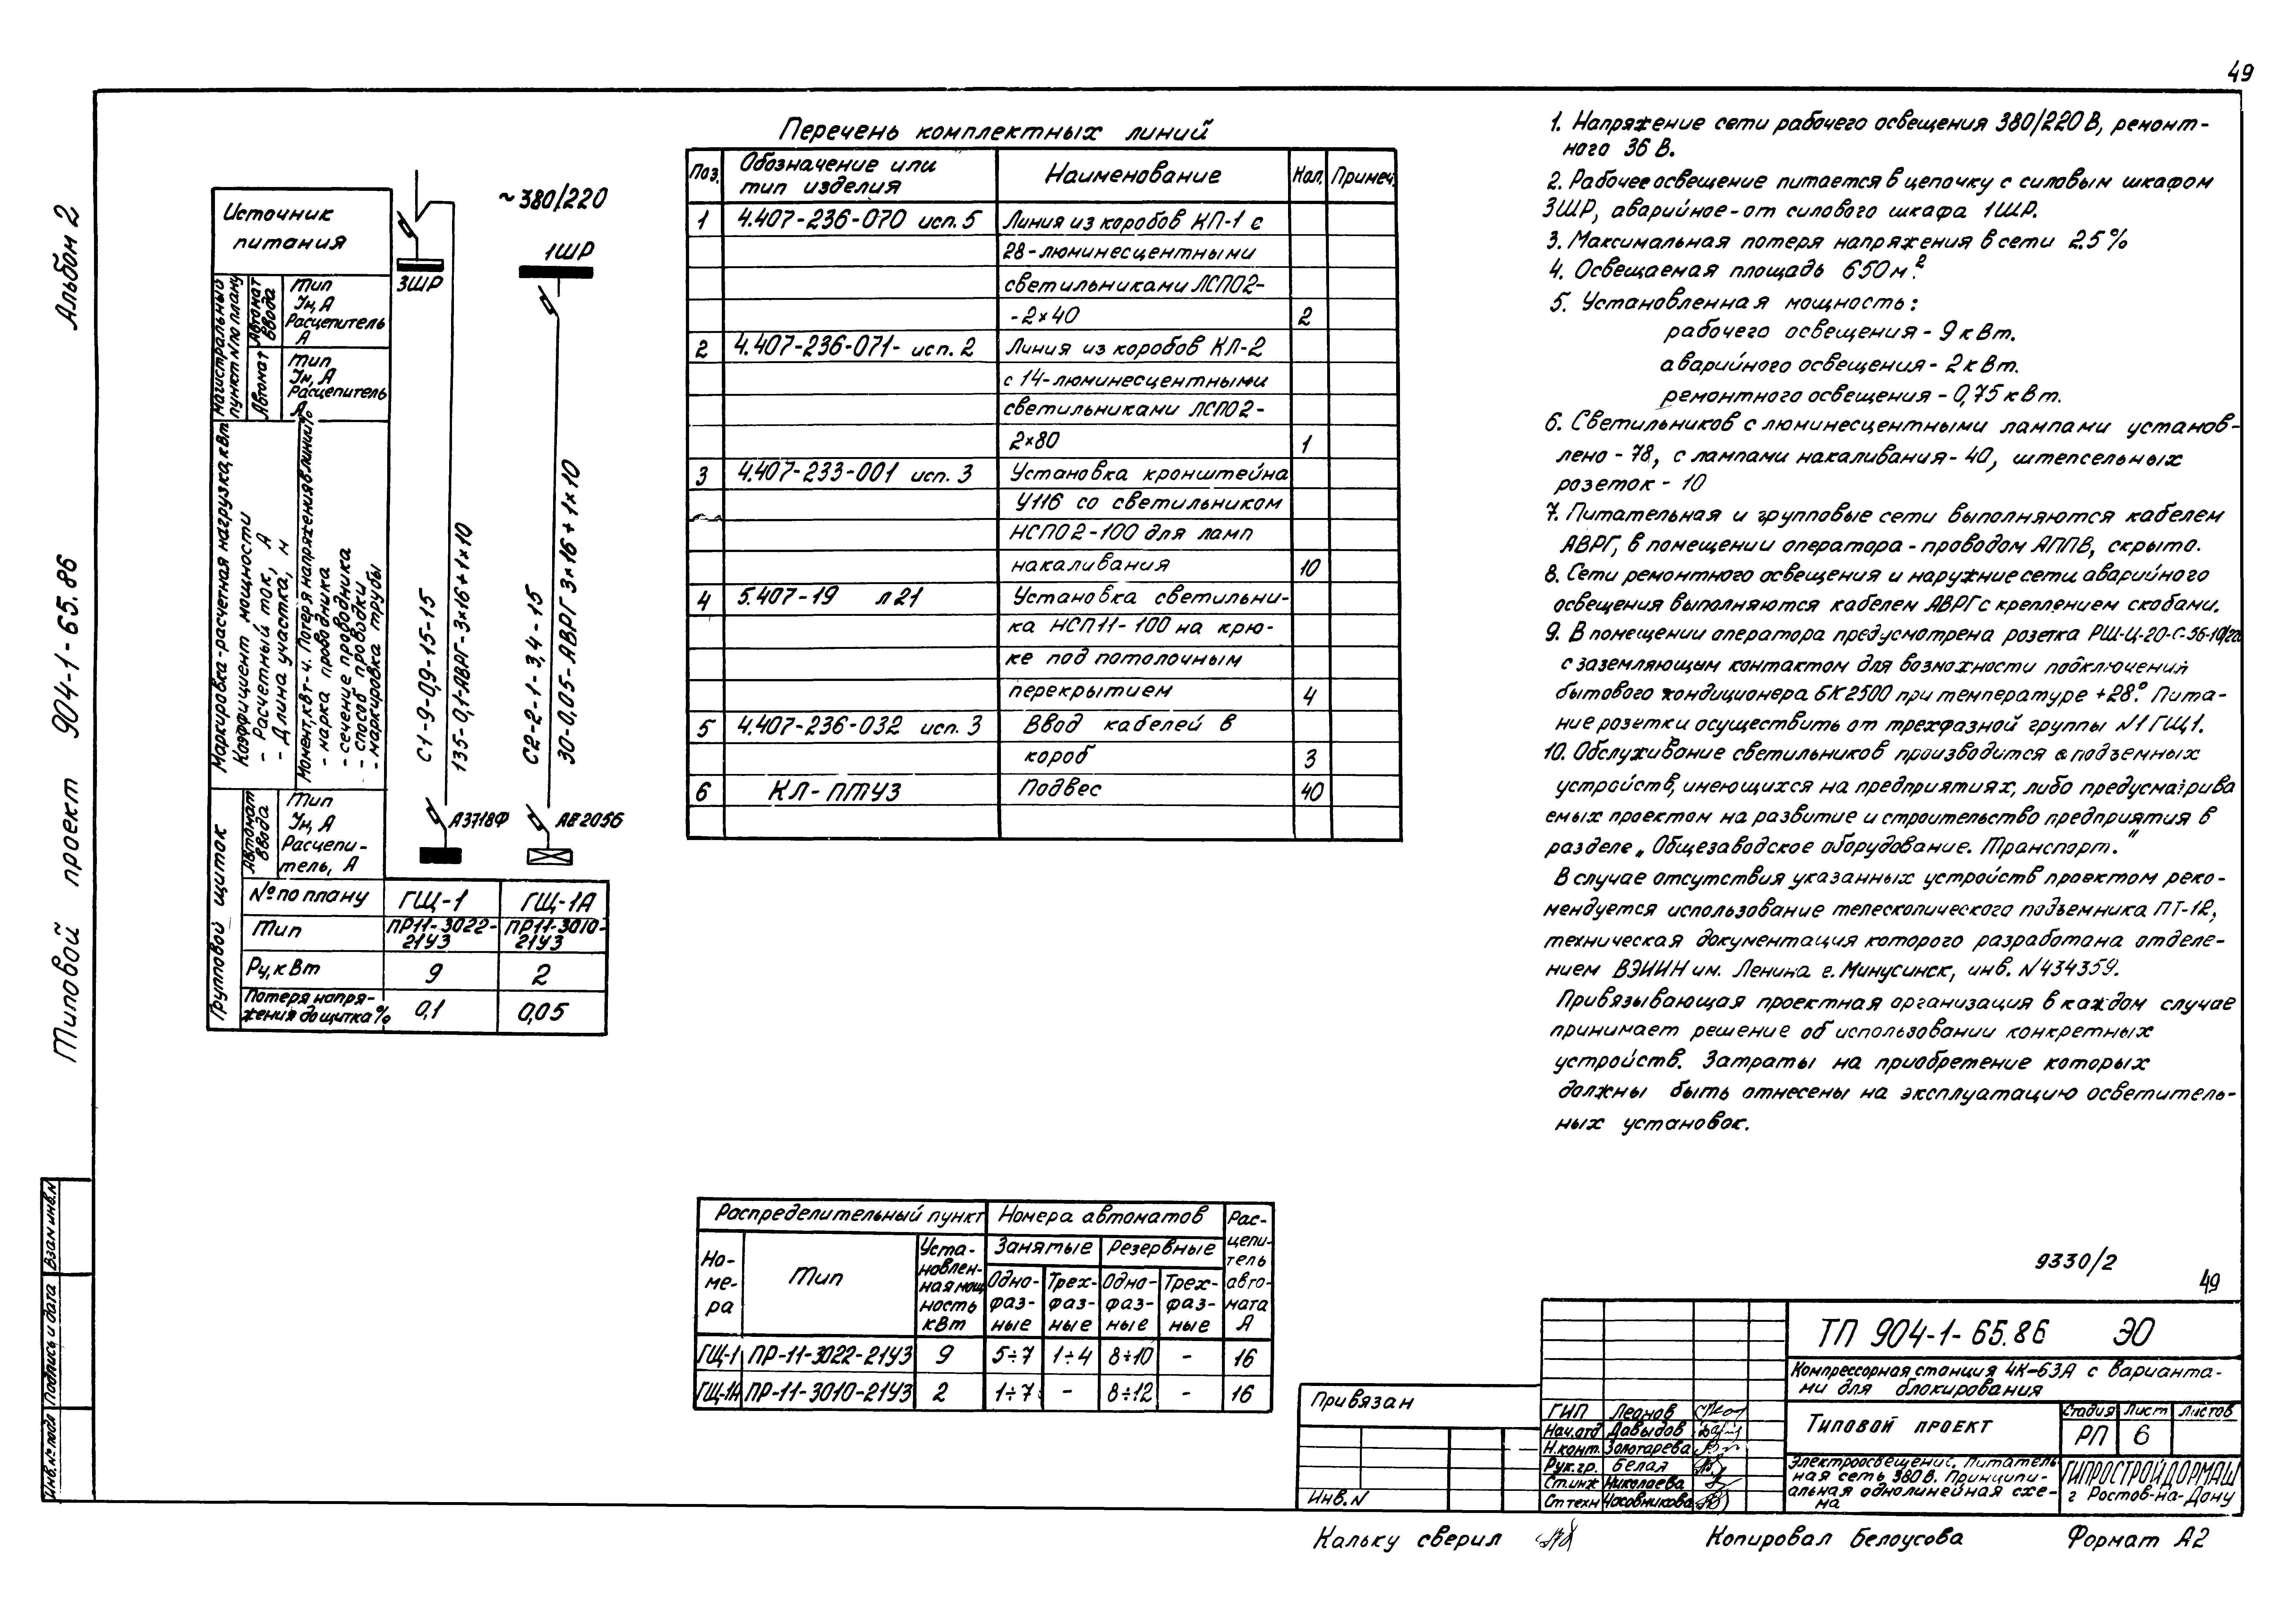 49
Альбом 2
Типовой проект 904-1-65.86
Взам инв.N
Подпись и дата
Инв.№ подл
Источник
питания
~380/220
1ШР
3ШР
Магистральный
пункт N по плану
Автомат
ввода
Тип
Iн, А
Расцепитель
А
Автомат
Тип
Iн, А
Расцепитель
А
Маркировка-расчетная нагрузка, кВт
Коэффициент мощности
- Расчетный ток, А
- Длина участка, м
Момент, кВт-ч. Потеря напряжения в линии %
- марка проводника
- сечение проводника
- способ проводки
- маркировка трубы
С1-9-0,9-15-15
135-0,1-АВРГ-3×16+1×10
С2-2-1-3,4-15
30-0,05-АВРГ 3×16+1×10
А3718Ф
АЕ2056
Групповой щиток
Автомат
ввода
Тип
Iн, А
Расцепи-
тель, А
№ по плану ГЩ-1 ГЩ-1А
Тип ПР11-3022-21У3 ПР11-3010-21У3
Ру, кВт 9 2
Потеря напря-
жения до щитка % 0,1 0,05
Перечень комплектных линий
Поз. Обозначение или тип изделия Наименование Кол. Примеч.
1 4.407-236-070 исп. 5 Линия из коробов КЛ-1 с
28-люминесцентными
светильниками ЛСП02-
-2×40 2
2 4.407-236-071- исп. 2 Линия из коробов КЛ-2
с 14-люминесцентными
светильниками ЛСП02-
2×80 1
3 4.407-233-001 исп. 3 Установка кронштейна
У116 со светильником
НСП02-100 для ламп
накаливания 10
4 5.407-19 л21 Установка светильни-
ка НСП11-100 на крю-
ке под потолочным
перекрытием 4
5 4.407-236-032 исп. 3 Ввод кабелей в
короб 3
6 КЛ-ПТУ3 Подвес 40
1. Напряжение сети рабочего освещения 380/220 В, ремонт-
ного 36 В.
2. Рабочее освещение питается в цепочку с силовым шкафом
3ШР, аварийное-от силового шкафа 1ШР.
3. Максимальная потеря напряжения в сети 2.5%
4. Освещаемая площадь 650 м.²
5. Установленная мощность:
рабочего освещения - 9 кВт.
аварийного освещения - 2 кВт.
ремонтного освещения - 0,75 кВт.
6. Светильников с люминесцентными лампами установ-
лено - 78, с лампами накаливания - 40, штепсельных
розеток - 10
7. Питательная и групповые сети выполняются кабелем
АВРГ, в помещении оператора - проводом АППВ, скрыто.
8. Сети ремонтного освещения и наружние сети аварийного
освещения выполняются кабелем АВРГ с креплением скобами.
9. В помещении оператора предусмотрена розетка РШ-Ц-20-С-56-10/220
с заземляющим контактом для возможности подключений
бытового кондиционера БК2500 при температуре +28°. Пита-
ние розетки осуществить от трехфазной группы N1 ГЩ1.
10. Обслуживание светильников производится с подъемных
устройств, имеющихся на предприятиях, либо предусматрива
емых проектом на развитие и строительство предприятия в
разделе „Общезаводское оборудование. Транспорт."
В случае отсутствия указанных устройств проектом реко-
мендуется использование телескопического подъемника ПТ-12,
техническая документация которого разработана отделе-
нием ВЭИИН им. Ленина г. Минусинск, инв. N434359.
Привязывающая проектная организация в каждом случае
принимает решение об использовании конкретных
устройств. Затраты на приобретение которых
должны быть отнесены на эксплуатацию осветитель-
ных установок.
Распределительный пункт Номера автоматов Рас-
цепи-
тель
авто-
мата
А
Но-
ме-
ра
Тип
Уста-
новлен-
ная мощ
ность
кВт
Занятые Резервные
Одно-
фаз-
ные
Трех-
фаз-
ные
Одно-
фаз-
ные
Трех-
фаз-
ные
ГЩ-1 ПР-11-3022-21У3 9 5÷7 1÷4 8÷10 - 16
ГЩ-1А ПР-11-3010-21У3 2 1÷7 - 8÷12 - 16
9330/2
49
Привязан
Инв. N
ТП 904-1-65.86 ЭО
Компрессорная станция 4К-63А с варианта-
ми для блокирования
ГИП Леонов
Нач.отд Давыдов
Н.конт. Золотарева
Рук.гр. Белая
Ст.инж Николаева
Ст техн Часовникова
Типовой проект
Стадия Лист Листов
РП 6
Электроосвещение. Питатель
ная сеть 380 В. Принципи-
альная однолинейная схе-
ма
ГИПРОСТРОЙДОРМАШ
г Ростов-на-Дону
Кальку сверил
Копировал Белоусова
Формат А2